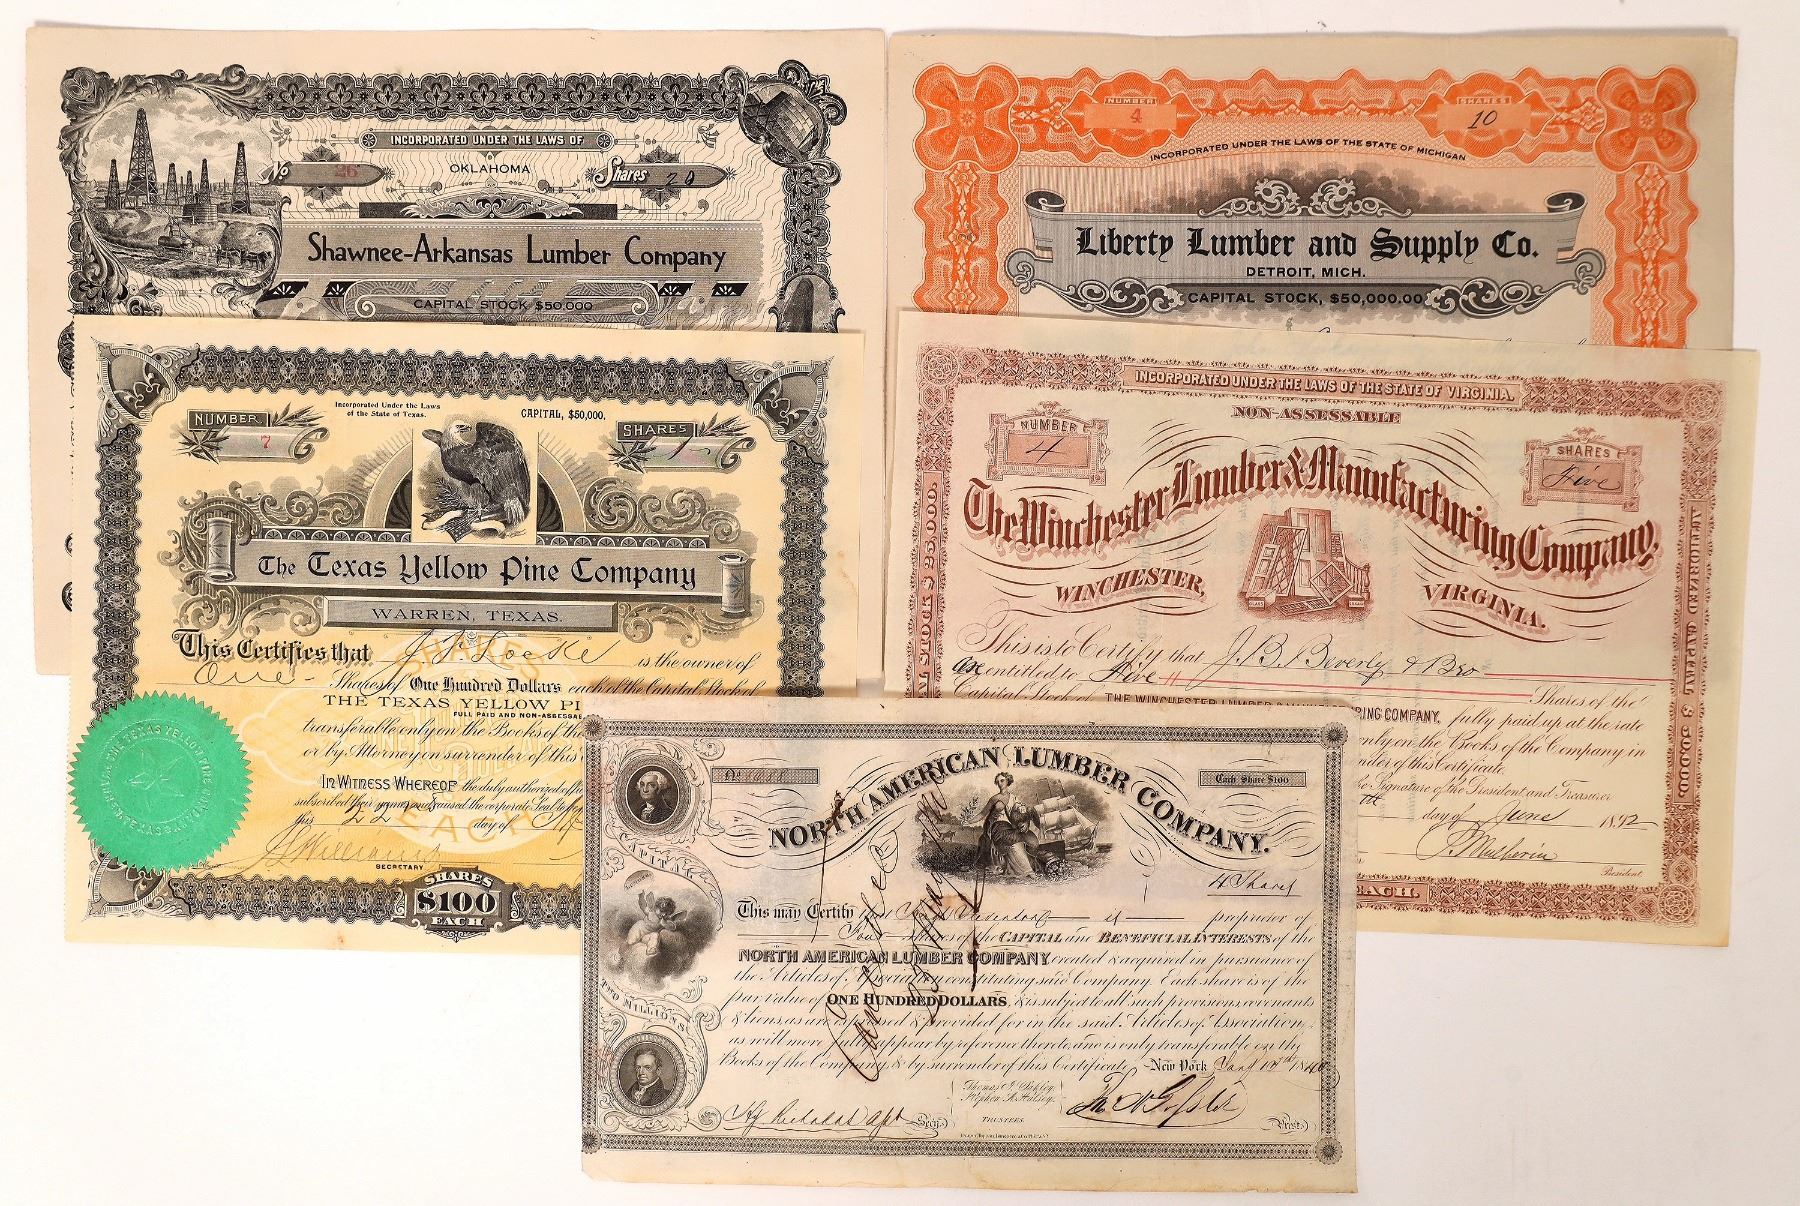 INCORPORATED UNDER THE LAWS OF
OKLAHOMA
No 26
Shares 20
Shawnee-Arkansas Lumber Company
CAPITAL STOCK $50,000
NUMBER
4
SHARES
10
INCORPORATED UNDER THE LAWS OF THE STATE OF MICHIGAN
Liberty Lumber and Supply Co.
DETROIT, MICH.
CAPITAL STOCK, $50,000.00
NUMBER
7
Incorporated Under the Laws
of the State of Texas.
CAPITAL, $50,000.
SHARES
1
The Texas Yellow Pine Company
WARREN, TEXAS.
This Certifies that J. P. Locke is the owner of
One Shares of One Hundred Dollars each of the Capital Stock of
THE TEXAS YELLOW PI
FULL PAID AND NON-ASSESSAB
transferable only on the Books of the
or by Attorney on surrender of this C
IN WITNESS WHEREOF the duly authorized of
subscribed their names and caused the corporate Seal to
this 22 day of
SECRETARY
SHARES
$100
EACH
SHARES
EACH
THE TEXAS YELLOW PINE COMPANY
WARREN, TEXAS
INCORPORATED UNDER THE LAWS OF THE STATE OF VIRGINIA.
NON-ASSESSABLE
NUMBER
4
SHARES
Five
The Winchester Lumber & Manufacturing Company,
WINCHESTER, VIRGINIA.
AL STOCK $ 25,000.
AUTHORIZED CAPITAL $ 50,000.
This is to Certify that J. B. Beverly & Bro
are entitled to Five Shares of the
Capital Stock of THE WINCHESTER LUMBER & MANUFACTURING COMPANY, fully paid up at the rate
only on the Books of the Company in
nder of this Certificate.
he Signature of the President and Treasurer
day of June 1892
President
EACH.
NORTH AMERICAN LUMBER COMPANY.
No
Each Share $100
4 Shares
CAPITAL
TWO MILLIONS
This may Certify that is proprietor of
Four shares of the CAPITAL and BENEFICIAL INTERESTS of the
NORTH AMERICAN LUMBER COMPANY created & acquired in pursuance of
the Articles of Association constituting said Company. Each share is of the
par value of ONE HUNDRED DOLLARS, & is subject to all such provisions, covenants
& liens, as are expressed & provided for in the said Articles of Association,
as will more fully appear by reference thereto, and is only transferable on the
Books of the Company & by surrender of this Certificate New York
Cancelled
Secy.
TRUSTEES
Prest.